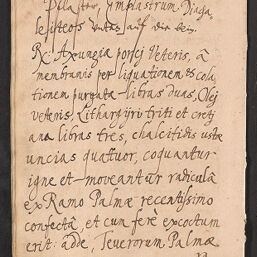 Pflaster, Emplastrum Diapa,
auff die bein.
Rx. Axungiæ porcj Veteris, â
membranis per liquationem et cola,
tionem purgatæ libras duas, Olej
veteris, Lithargijri triti et cretj
ana libras tres, chalcitidis ustæ
uncias quattuor, coquantur
igne et moveantur radiculâ
ex Ramo Palmæ recentissimo
confectâ, et cum ferè excoctum
erit adde, Teucrorum Palmæ